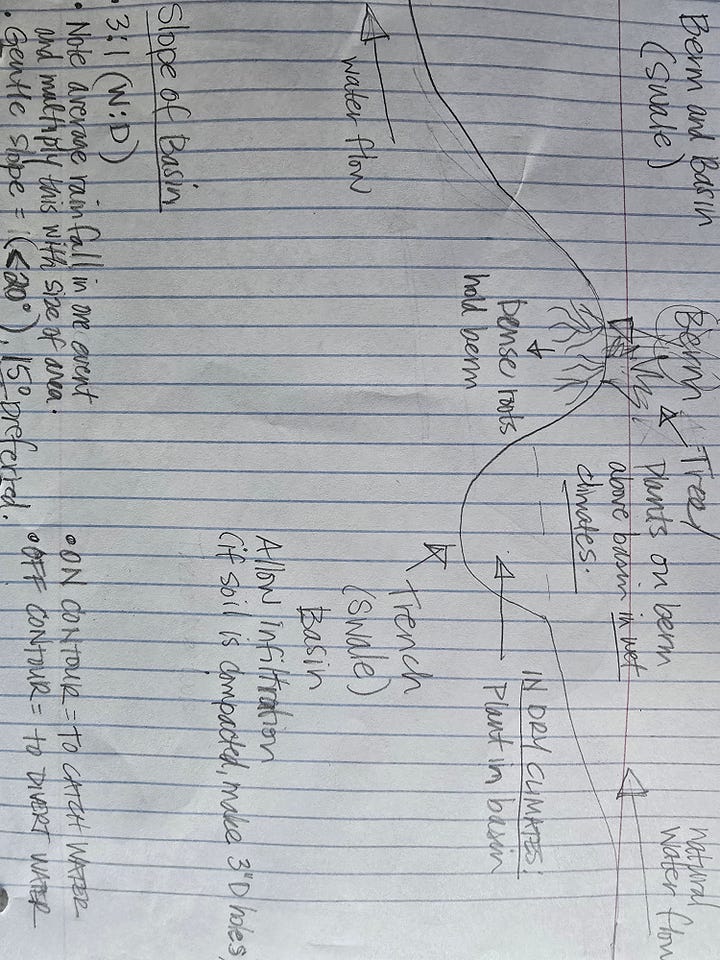 Berm and Basin
(Swale)
Berm
Tree/
Plants on berm
above basin in wet
climates.
natural
water flow
Dense roots
hold berm
IN DRY CLIMATES:
Plant in basin
water flow
Trench
(Swale)
Basin
Allow infiltration
(if soil is compacted, make 3"D holes,
Slope of Basin
• 3:1 (W:D)
• Note average rainfall in one event
and multiply this with size of area.
• Gentle slope = (<20°), 15° preferred.
• ON CONTOUR = TO CATCH WATER
• OFF CONTOUR = TO DIVERT WATER